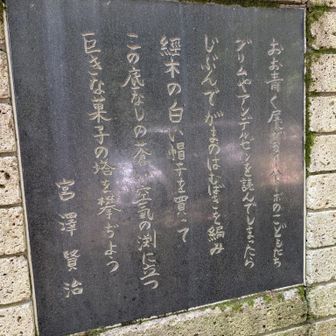 おお青く展がるイーハトーボのこどもたち
グリムやアンデルゼンを読んでしまったら
じぶんでがまのはむばきを編み
經木の白い帽子を買って
この底なしの蒼い空気の淵に立つ
巨きな菓子の塔を攀ぢよう
宮澤賢治